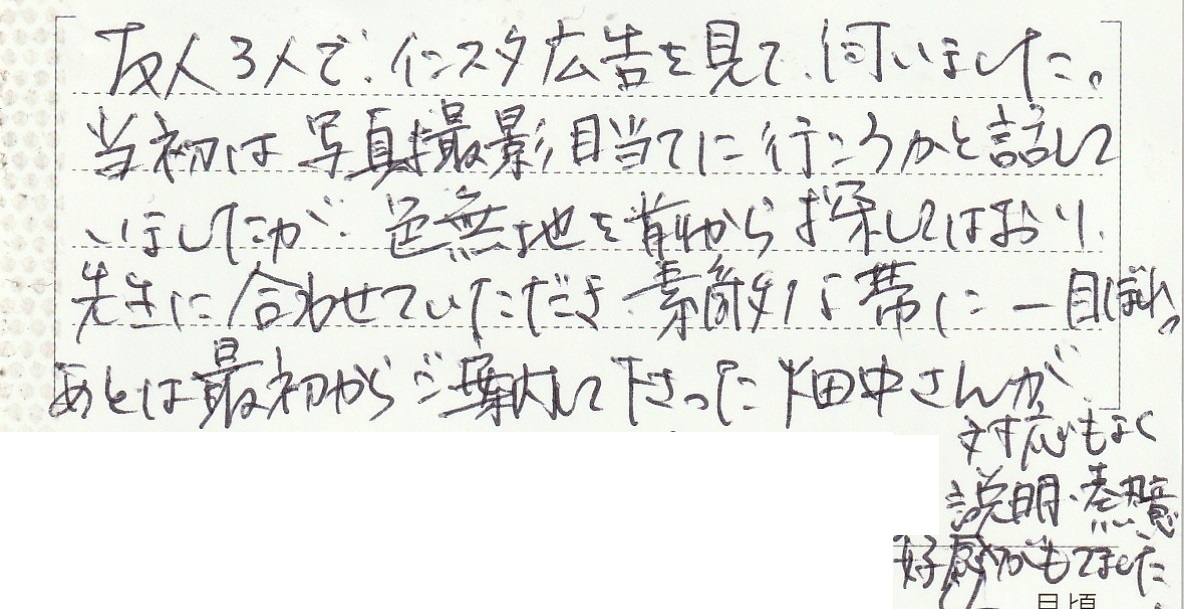 友人3人で、インスタ広告を見て、伺いました。
当初は写真撮影目当てに行こうかと話して
いましたが、色無地を前からお探してはおり、
先生に合わせていただき、素敵な帯に一目ぼれ。
あとは最初からご案内して下さった畑中さんが
対応もよく
説明・熱意
好感がもてました
日頃